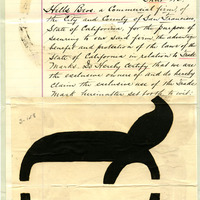 Hills Bros. a Commercial firm of
the City and County of San Francisco,
State of California, for the purpose of
securing to our said firm the advantage,
benefit and protection of the laws of the
State of California in relation to Trade
Marks. Do Hereby Certify that we are
the exclusive owners of and do hereby
claim the exclusive use of the Trade
Mark hereinafter set forth to wit: